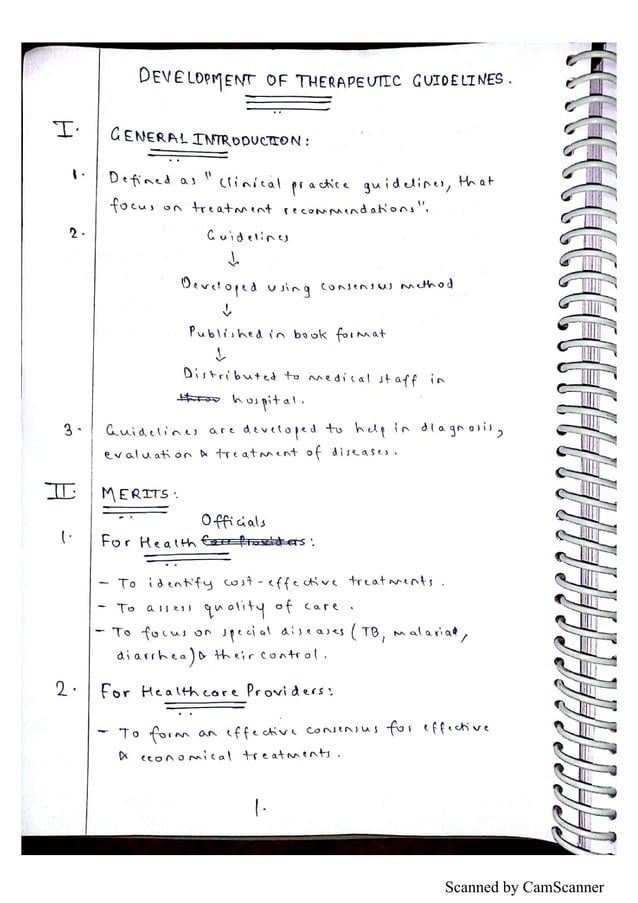 DEVELOPMENT OF THERAPEUTIC GUIDELINES.
I. GENERAL INTRODUCTION:
1. Defined as "clinical practice guidelines, that
focus on treatment recommendations".
2. Guidelines
↓
Developed using consensus method
↓
Published in book format
↓
Distributed to medical staff in
hospital.
3. Guidelines are developed to help in diagnosis,
evaluation & treatment of diseases.
II: MERITS:
Officials
1. For Health Care Providers:
- To identify cost-effective treatments.
- To assess quality of care.
- To focus on special diseases (TB, malaria,
diarrhea) & their control.
2. For Healthcare Providers:
- To form an effective consensus for effective
& economical treatments.
1.
Scanned by CamScanner